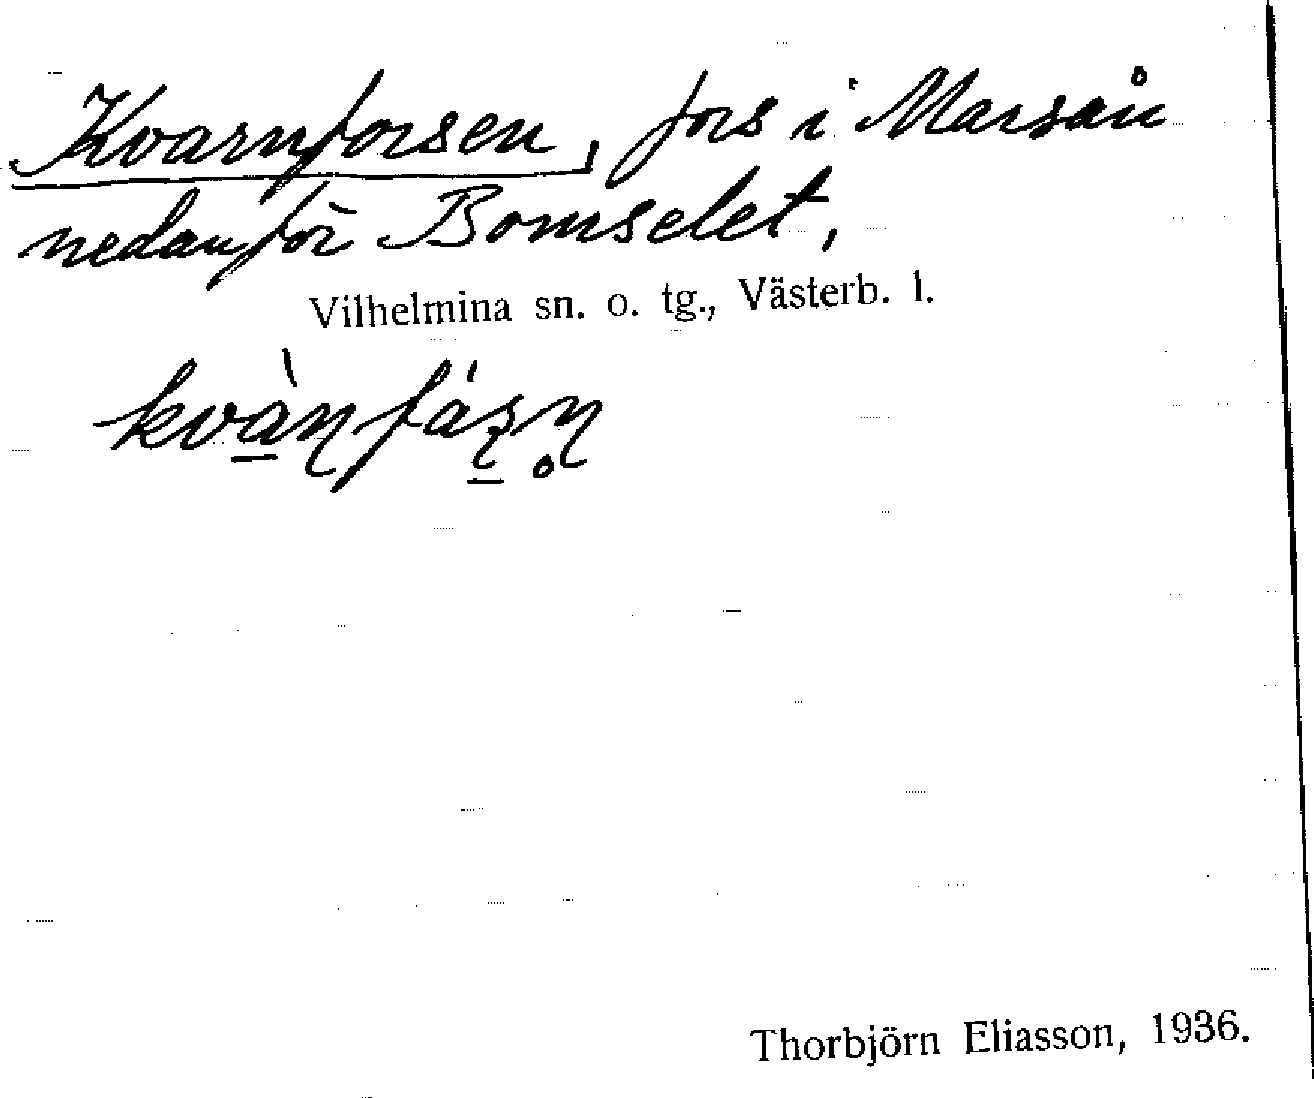 Kvarnforsen, fors i Marsån
nedanför Bomselet,
Vilhelmina sn. o. tg., Västerb. l.
kvàɳfáʂɳ̥
Thorbjörn Eliasson, 1936.